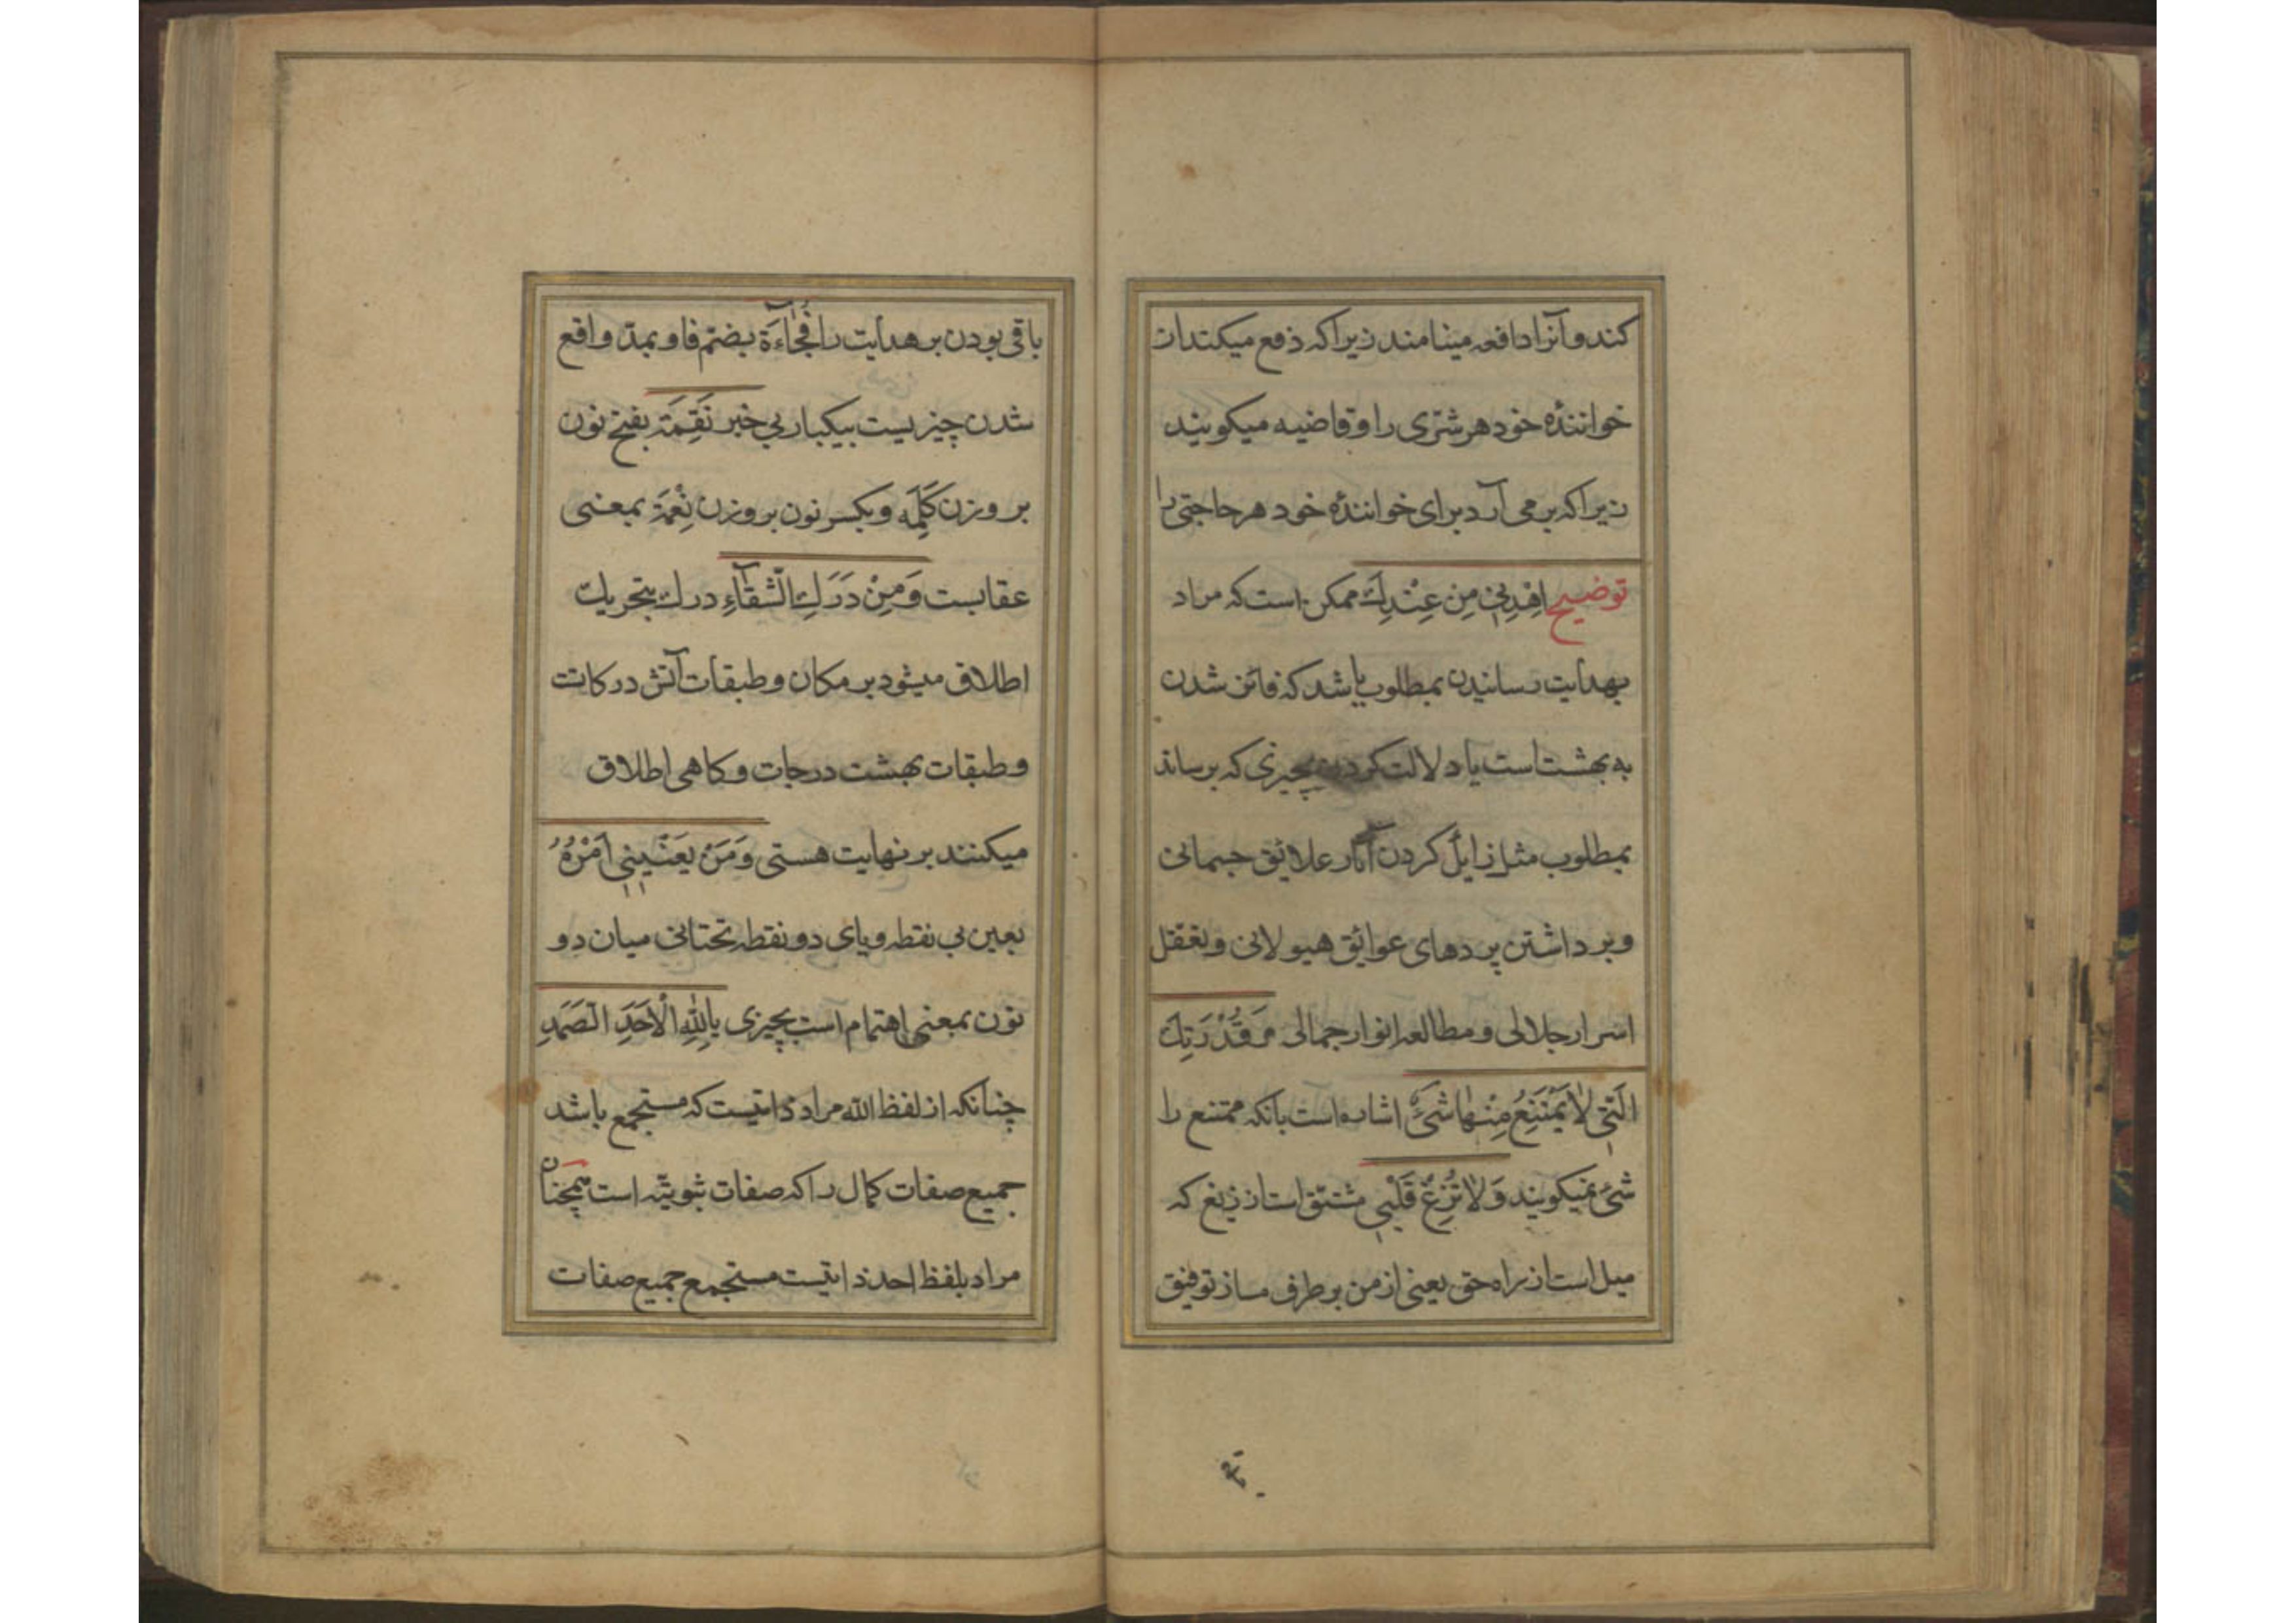 کند و آنرا دافعه مینامند زیرا که دفع میکند از
خوانندهٔ خود هر شرّی را و قاضیه میکویند
زیرا که بر می آرد برای خوانندهٔ خود هر حاجتی را
توضیح اِهْدِنِی مِن عِنْدِكَ ممکن است که مراد
بهدایت رسانیدن بمطلوب باشد که فائز شدن
به بهشت است یا دلالت کردن بچیزی که برساند
بمطلوب مثل زایل کردن آثار علایق جسمانی
و برداشتن پردهای عوایق هیولانی و تعقل
اسرار جلالی و مطالعه انوار جمالی وَ قُدْرَتِكَ
الَّتِی لٰا یَمْتَنِعُ مِنْهٰا شَیْءٌ اشاره است بانکه ممتنع را
شیء نمیکویند وَ لٰا تُزِغْ قَلْبِی مشتق است از زیغ که
میل است از راه حق یعنی از من بر طرف مساز توفیق
باقی بودن بر هدایت را فُجٰاءَةَ بضمّ فا و بمدّ واقع
شدن چیزیست بیکبار بی خبر نَقِمَة بفتح نون
بر وزن کَلِمَه و بکسر نون بر وزن نِعْمَة بمعنی
عقابست وَ مِنْ دَرَكِ الشَّقٰآءِ درك بتحریك
اطلاق میشود بر مکان و طبقات آتش درکاتست
و طبقات بهشت درجات و کاهی اطلاق
میکنند بر نهایت هستی وَ مَنْ یَعْنِینِی اَمْرُهُ
بعین بی نقطه و یای دو نقطه تحتانی میان دو
نون بمعنی اهتمام است بچیزی بِاللّٰهِ الْاَحَدِ الصَّمَدِ
چنانکه از لفظ الله مراد ذاتیست که مستجمع باشد
جمیع صفات کمال را که صفات ثبوتیّه است همچنان
مراد بلفظ احد ذاتیست مستجمع جمیع صفات